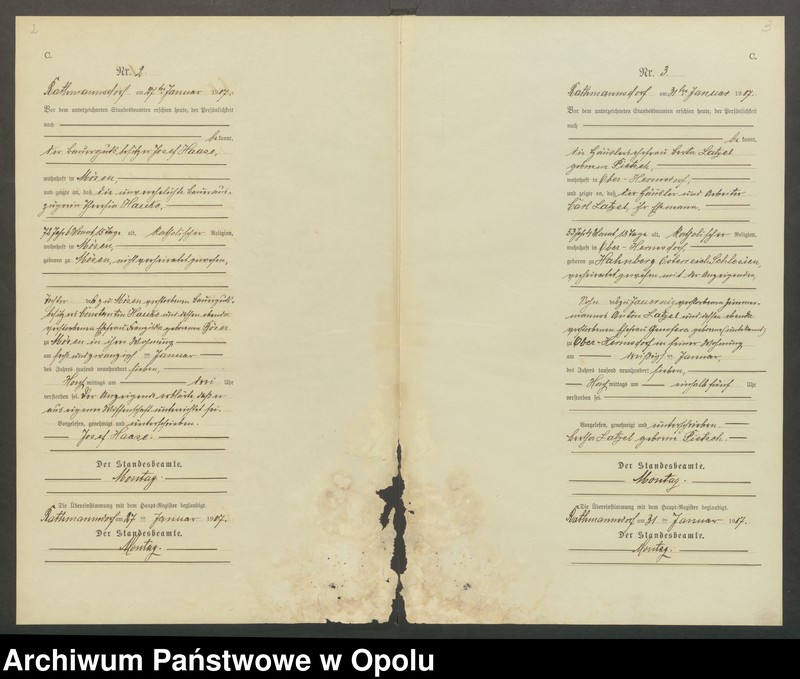 2
C.
Nr. 2
Rathmannsdorf am 27ten Januar 1907.
Vor dem unterzeichneten Standesbeamten erschien heute, der Persönlichkeit
nach
bekannt,
der Bauergutsbesitzer Josef Haase,
wohnhaft in Mösen,
und zeigte an, daß die unverehelichte Baueraus-
züglerin Theresia Hauke,
katholischer Religion,
wohnhaft in Mösen,
geboren zu Mösen, nicht verheiratet gewesen,
Tochter des zu Mösen verstorbenen Bauerguts-
besitzers Constantin Hauke und dessen ebenda
verstorbenen Ehefrau geborenen
zu Mösen in ihrer Wohnung
am sechsundzwanzigsten Januar
des Jahres tausend neunhundert sieben,
mittags um drei Uhr
verstorben sei. Der Anzeigende erklärte, daß er
aus eigener Wissenschaft unterrichtet sei.
Vorgelesen, genehmigt und unterschrieben.
Josef Haase.
Der Standesbeamte.
Montag.
Die Übereinstimmung mit dem Haupt-Register beglaubigt.
Rathmannsdorf am 27ten Januar 1907.
Der Standesbeamte.
Montag.
3
C.
Nr. 3.
Rathmannsdorf am 31ten Januar 1907.
Vor dem unterzeichneten Standesbeamten erschien heute, der Persönlichkeit
nach
bekannt,
die Häuslerehefrau Berta Latzel
geborene Pietsch,
wohnhaft in Ober-Hermsdorf,
und zeigte an, daß der Häusler und Arbeiter
Carl Latzel, ihr Ehemann.
katholischer Religion,
wohnhaft in Ober-Hermsdorf,
geboren zu Hahnberg Österreich Schlesien,
verheiratet gewesen mit der Anzeigenden,
Sohn des zu Jauernig verstorbenen Zimmer-
mannes Anton Latzel und dessen ebenda
verstorbenen Ehefrau Genofeva geborene (unbekannt)
zu Ober-Hermsdorf in seiner Wohnung
am dreißigsten Januar,
des Jahres tausend neunhundert sieben,
mittags um einhalb fünf Uhr
verstorben sei.
Vorgelesen, genehmigt und unterschrieben.
Bertha Latzel geborene Pietsch.
Der Standesbeamte.
Montag.
Die Übereinstimmung mit dem Haupt-Register beglaubigt.
Rathmannsdorf am 31ten Januar 1907.
Der Standesbeamte.
Montag.
Archiwum Państwowe w Opolu